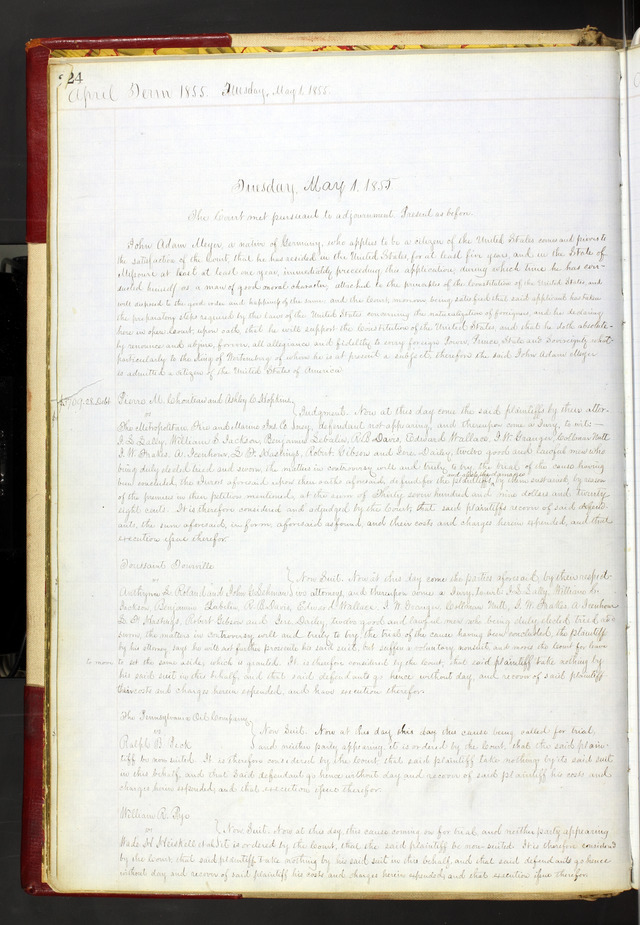 24
April Term 1855. Tuesday, May 1. 1855.
Tuesday, May 1. 1855.
The Court met pursuant to adjournment Present as before.
John Adam Meyer, a native of Germany, who applies to be a citizen of the United States comes and proves to
the satisfaction of the Court, that he has resided in the United States, for at least five years, and in the State of
Missouri at least at least one year, immediately preceeding this application, during which time he has con-
ducted himself as a man of good moral character, attached to the principles of the Constitution of the United States, and
well disposed to the good order and happiness of the same, and the Court, moreover being satisfied that said applicant has taken
the preparatory steps required by the laws of the United States concerning the naturalization of foreigners, and he declaring
here in open Court, upon oath, that he will support the Constitution of the United States and that he doth absolute-
ly renounce and abjure, forever, all allegiance and fidelity to every foreign Power, Prince, State and Sovereignty what-
particularly to the King of Wertemberg of whom he is at present a subject, therefore the said John Adam Meyer
is admitted a citizen of the United States of America
Pierre M. Chouteau and Ashley C. Hopkins
vs
Judgment. Now at this day come the said plaintiffs by their attor-
The Metropolitan Fire and Marine Ins. Co. ney, defendant not appearing, and thereupon came a Jury, to wit:—
I. S. Lally, William E. Jackson, Benjamin Lebaler, R. B. Davis, Edward Wallace, I. W. Granger, Coltman Nutt
I. W. Frakes, A. Isenhour, L. D. Hastings, Robert Gibson and Gere Dailey twelve good and lawful men who
being duly elected tried and sworn, the matters in controversy well and truly to try, the trial of the cause having
and assess the damages
been concluded, the Jurors aforesaid upon their oaths aforesaid, do find for the plaintiffs by them sustained, by reason
of the premises in their petition mentioned, at the sum of Thirty seven hundred and nine dollars and twenty
eight cents. It is therefore considered and adjudged by the Court, that said plaintiffs recover of said defend-
ants, the sum aforesaid, in form aforesaid as found, and their costs and charges herein expended, and that
execution issue therefor.
Toussaint
vs
Non Suit. Now at this day come the parties aforesaid by their respect-
L. Roland and John ive attorneys, and thereupon came a Jury, to wit. I. S. Lally, William E.
Jackson, Benjamin R. B. Davis, Edward Wallace, I. W. Granger, Coltman Nutt, I. W. Frakes A. Isenhour
L. D. Hastings, Robert Gibson and Gere Dailey, twelve good and lawful men who being duly elected tried and
sworn, the matters in controversy well and truly to try, the trial of the cause having been concluded, the plaintiff
by his attorney says he will not further prosecute his said suit, but suffers a voluntary nonsuit and moves the Court for leave
to move to set the same aside, which is granted. It is therefore considered by the Court, that said plaintiff take nothing by
his said suit in this behalf, and that said defendants go hence without day, and recover of said plaintiff
their costs and charges herein expended, and have execution therefor.
The Pennsylvania Oil Company
vs
Non Suit. Now at this day this day this cause being called for trial
Ralph B. Peck and neither party appearing, it is ordered by the Court, that the said plain-
tiff be non suited. It is therefore considered by the Court that said plaintiff take nothing by its said suit
in this behalf, and that said defendant go hence without day and recover of said plaintiff his costs and
charges herein expended, and that execution issue therefor.
William R. Pye
vs
Non Suit. Now at this day, this cause coming on for trial, and neither party appearing
Wade H. Heiskell et al it is ordered by the Court, that the said plaintiff be non-suited. It is therefore considered
by the Court, that said plaintiff take nothing by his said suit in this behalf, and that said defendants go hence
without day and recover of said plaintiff his costs and charges herein expended, and that execution issue therefor.